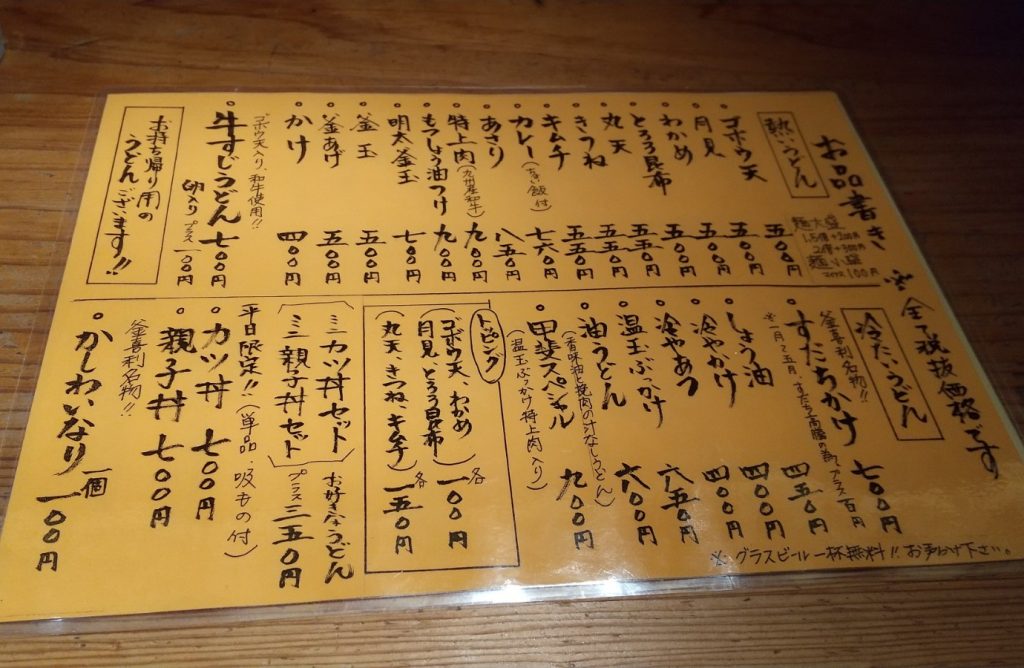 お品書き
※全て税抜価格です
麺大盛
1.5倍+200円
2倍+300円
麺小盛
マイナス100円
熱いうどん
ゴボウ天 五〇〇円
月見 五〇〇円
わかめ 五〇〇円
とろろ昆布 五五〇円
丸天 五五〇円
きつね 五五〇円
キムチ 五五〇円
カレー(ちょい飯付) 七六〇円
あさり 八五〇円
特上肉(九州産和牛) 九〇〇円
もつしょう油つけ 九〇〇円
明太釜玉 七〇〇円
釜玉 五〇〇円
釜あげ 五〇〇円
かけ 四〇〇円
ゴボウ天入り、和牛使用!!
牛すじうどん 七〇〇円
卵入りプラス一〇〇円
お持ち帰り用の
うどんございます!!
冷たいうどん
釜喜利名物!!
すだちかけ 七〇〇円
※一月~五月、すだち高騰の為プラス百円
しょう油 四五〇円
冷やかけ 四〇〇円
冷やあつ 四〇〇円
温玉ぶっかけ 六五〇円
油うどん 六〇〇円
(香味油と挽肉の汁なしうどん)
甲斐スペシャル 九〇〇円
(温玉ぶっかけ特上肉入り)
トッピング
(ゴボウ天、わかめ
月見、とろろ昆布)各一〇〇円
(丸天、きつね、キムチ)各一五〇円
ミニカツ丼セット
ミニ親子丼セット
お好きなうどん
プラス三五〇円
平日限定!!(単品 吸もの付)
カツ丼 七〇〇円
親子丼 七〇〇円
釜喜利名物!!
かしわいなり 一個一〇〇円
※グラスビール一杯無料!!お声かけ下さい。